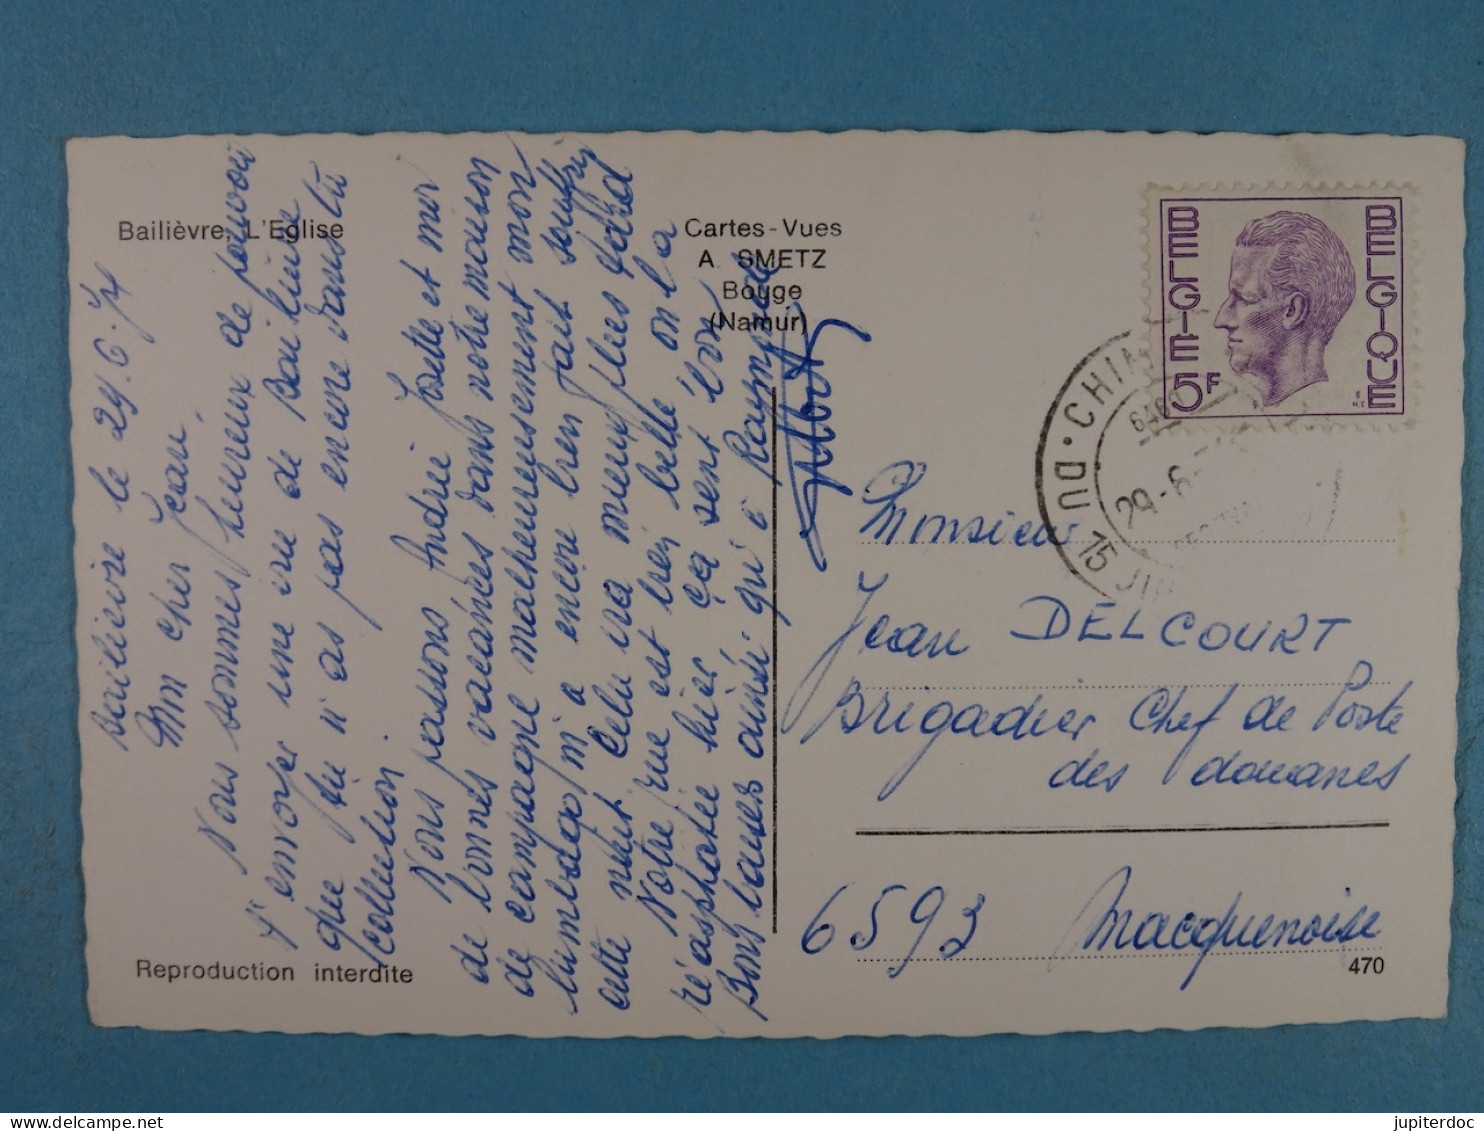 Bailièvre L'Eglise
Cartes-Vues
A. SMETZ
Bouge
(Namur)
Bailièvre le 29.6.74
Mon cher Jean,
Nous sommes heureux de pouvoir
t'envoyer une vue de Bailièvre
que tu n'as pas encore dans ta
collection.
Nous passons André Josette et moi
de bonnes vacances dans notre maison
de campagne malheureusement mon
lumbago m'a encore bien fait souffrir
cette nuit. Cela va mieux
Notre rue est très belle on l'a
réasphaltée hier ça sent bon
Bons baisers ainsi qu'à Raymonde
BELGIE 5F
BELGIQUE
DU 15 JUI
CHIM
6460
29-6-
Monsieur
Jean DELCOURT
Brigadier Chef de Poste
des douanes
6593 Macquenoise
Reproduction interdite
470
jupiterdoc